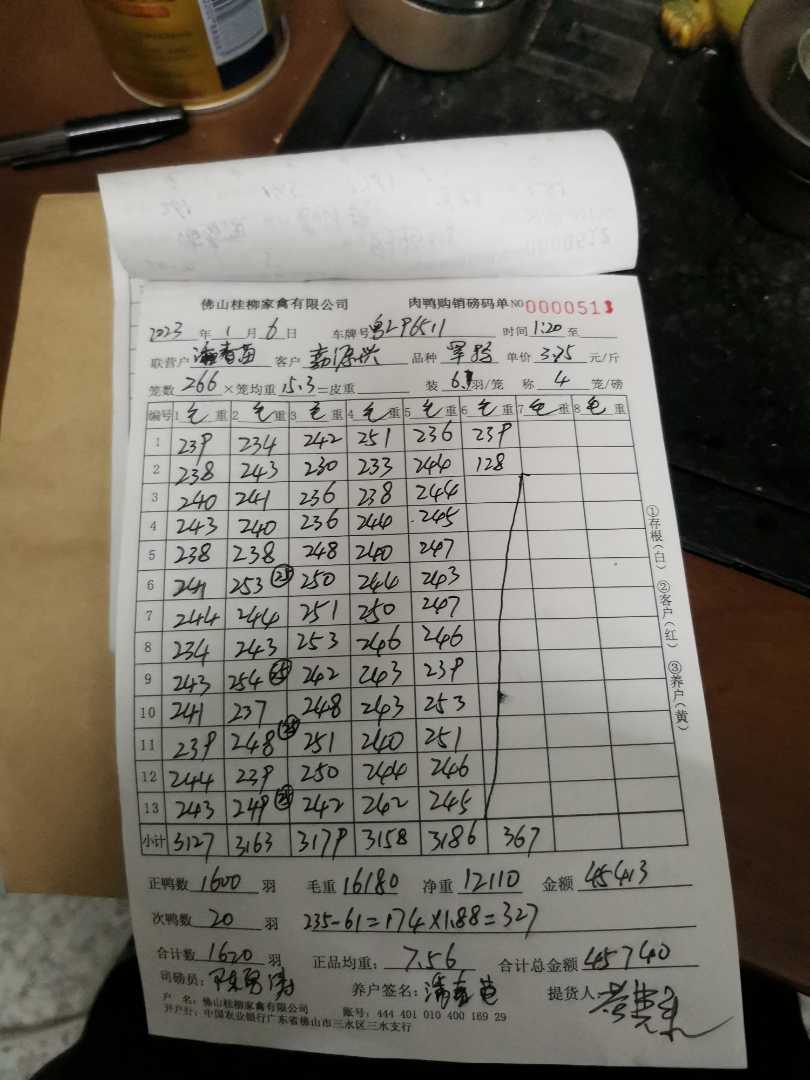 佛山桂柳家禽有限公司 肉鸭购销磅码单 NO 0000513
2023 年 1 月 6 日 车牌号 粤LP6511 时间 1:20 至
联营户 潘春苗 客户 嘉源兴 品种 单价 3.75 元/斤
笼数 266 × 笼均重 15.3 = 皮重 装 6.1 羽/笼 称 4 笼/磅
编号 1 毛 重 2 毛 重 3 毛 重 4 毛 重 5 毛 重 6 毛 重 7 毛 重 8 毛 重
1 239 234 242 251 236 239
2 238 243 230 233 244 128
3 240 241 236 238 244
4 243 240 236 244 245
5 238 238 248 240 247
6 241 253 (25) 250 244 243
7 244 244 251 250 247
8 234 243 253 246 246
9 243 254 (25) 242 243 239
10 241 237 248 243 253
11 239 248 (25) 251 240 251
12 244 239 250 244 246
13 243 249 (25) 242 242 245
小计 3127 3163 3179 3158 3186 367
正鸭数 1600 羽 毛重 16180 净重 12110 金额 45413
次鸭数 20 羽 235-61=174×1.88=327
合计数 1620 羽 正品均重: 7.56 合计总金额 45740
司磅员: 养户签名: 潘春苗 提货人
户 名: 佛山桂柳家禽有限公司 账号: 444 401 010 400 169 29
开户行: 中国农业银行广东省佛山市三水区三水支行
①存根(白) ②客户(红) ③养户(黄)